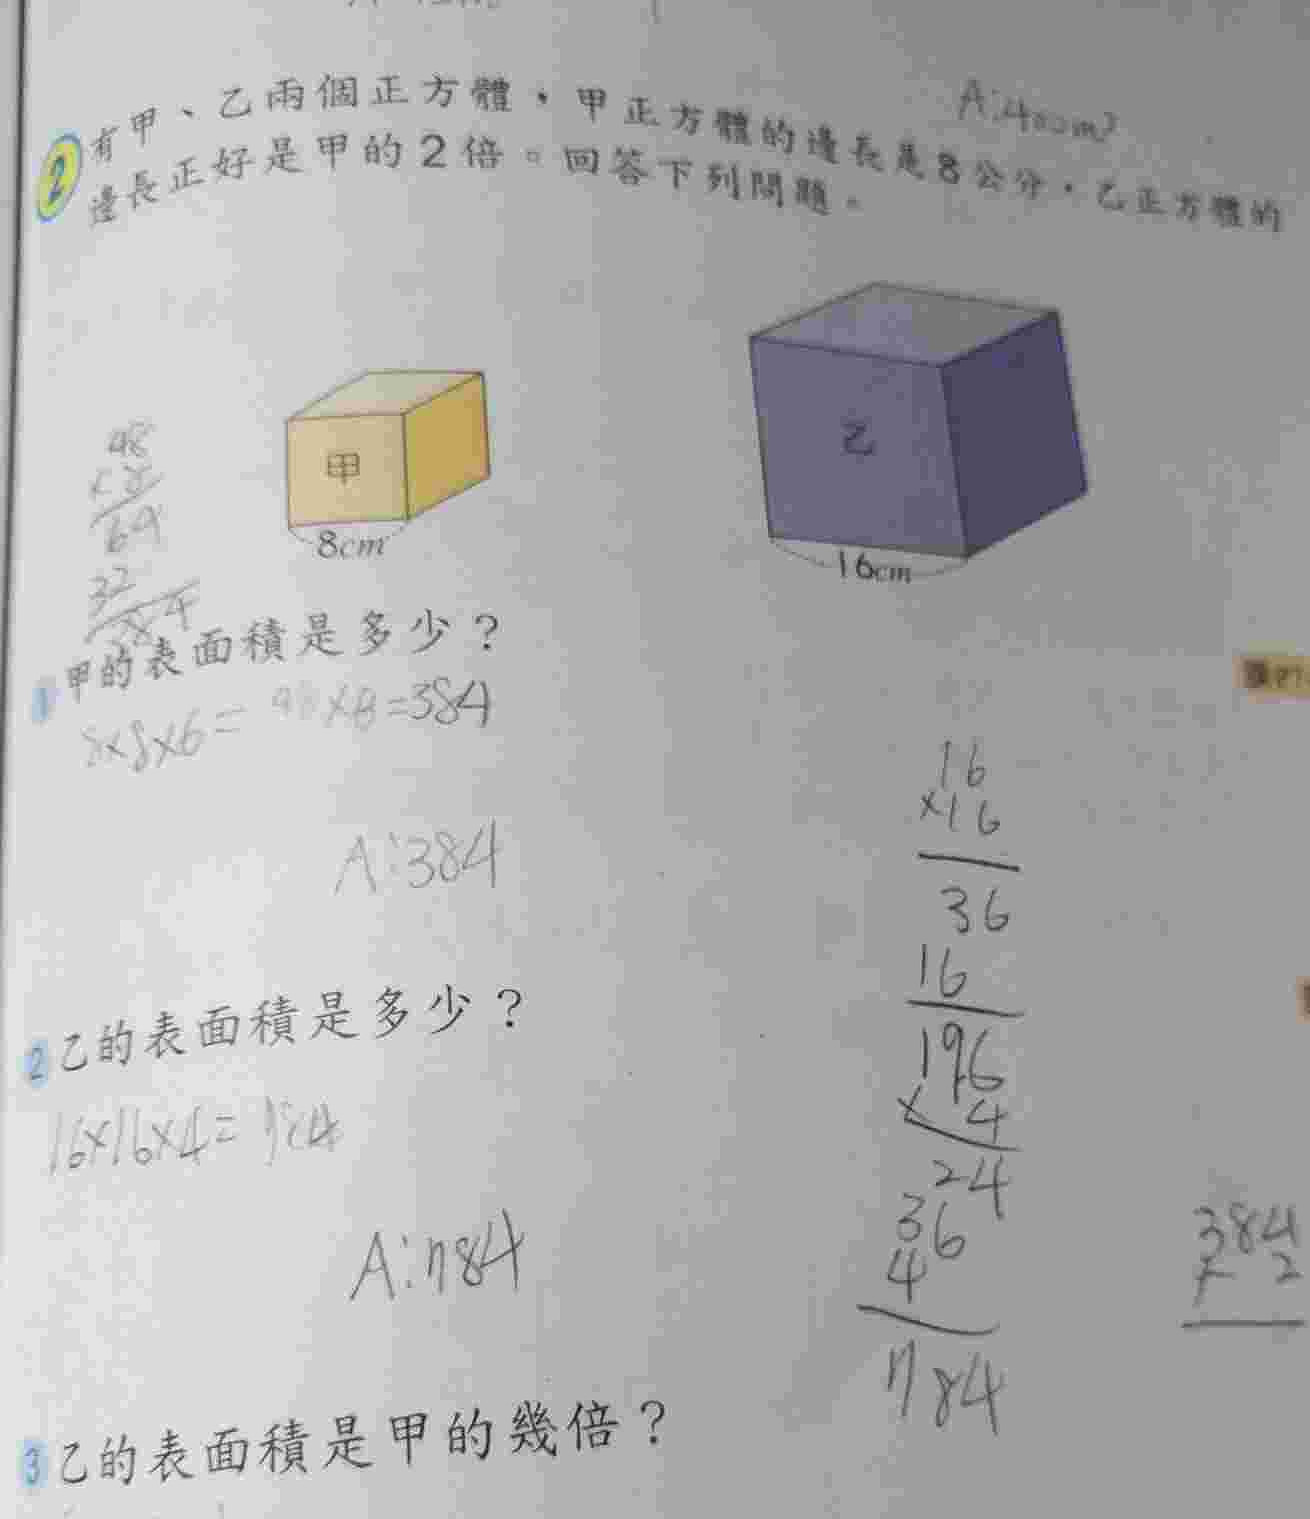 A:400m³
2 有甲、乙兩個正方體，甲正方體的邊長是8公分，乙正方體的
邊長正好是甲的2倍。回答下列問題。
甲
8cm
乙
16cm
48
× 8
64
32
384
1 甲的表面積是多少？
8×8×6= 48×8=384
A:384
16
×16
36
16
196
× 4
24
36
4
784
2 乙的表面積是多少？
16×16×4=
A:784
384
× 2
3 乙的表面積是甲的幾倍？